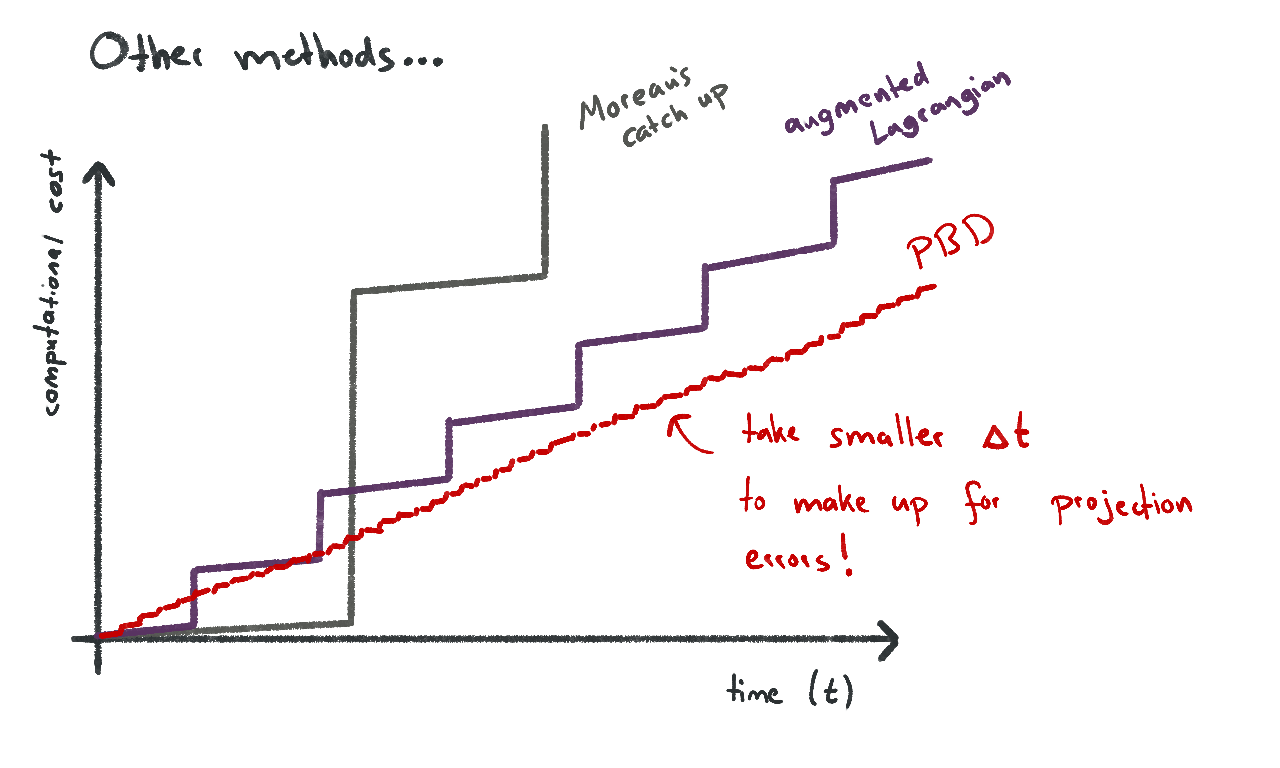 Other methods...
Moreau's
catch up
augmented
Lagrangian
PBD
computational cost
take smaller Δt
to make up for projection
errors!
time (t)